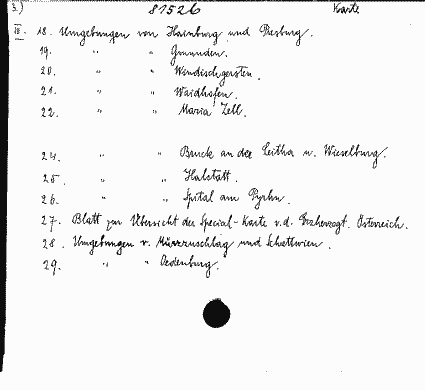 3.) 81526 Karte
III. 18. Umgebungen von Hainburg und Presburg.
19. " " Gmunden.
20. " " Windischgersten.
21. " " Waidhofen.
22. " " Maria Zell.
24. " " Bruck an der Leitha u. Wieselburg.
25. " " Halstatt.
26. " " Spital am Pyhrn.
27. Blatt zur Übersicht der Special-Karte v. d. Erzherzogt. Österreich.
28. Umgebungen v. Mürzzuschlag und Schottwien.
29. " " Oedenburg.